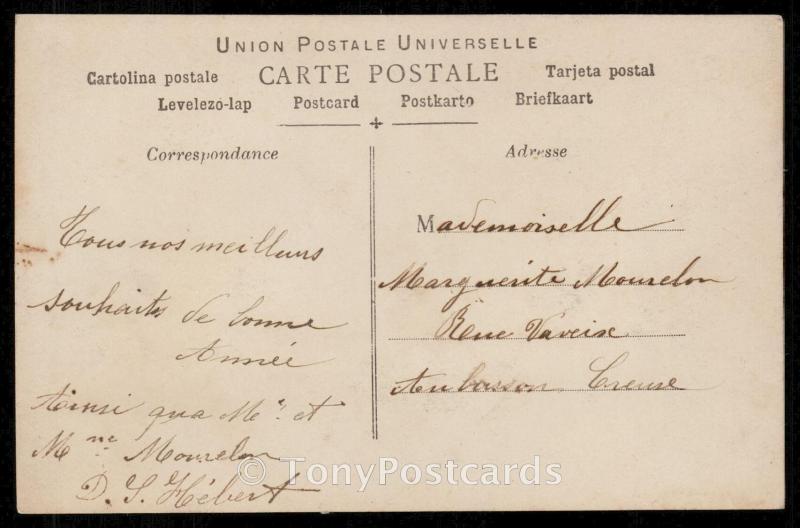 UNION POSTALE UNIVERSELLE
CARTE POSTALE
Cartolina postale Tarjeta postal
Levelező-lap Postcard Postkarto Briefkaart
Correspondance
Tous nos meilleurs
souhaits de bonne
Année
Ainsi qua Mr. et
Mme Mourelon
D. S. Hébert
Adresse
Mademoiselle
Marguerite Mourelon
Rue Vaveix
Aubusson Creuse
© TonyPostcards